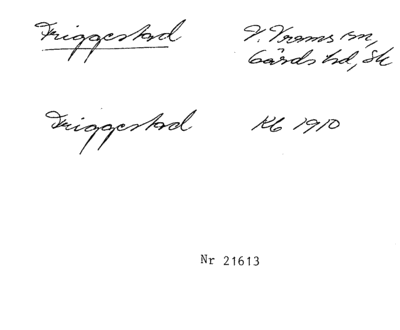 Friggestad
V. Vrams sn,
Gärds hd, Sk
Friggestad
Kb 1910
Nr 21613